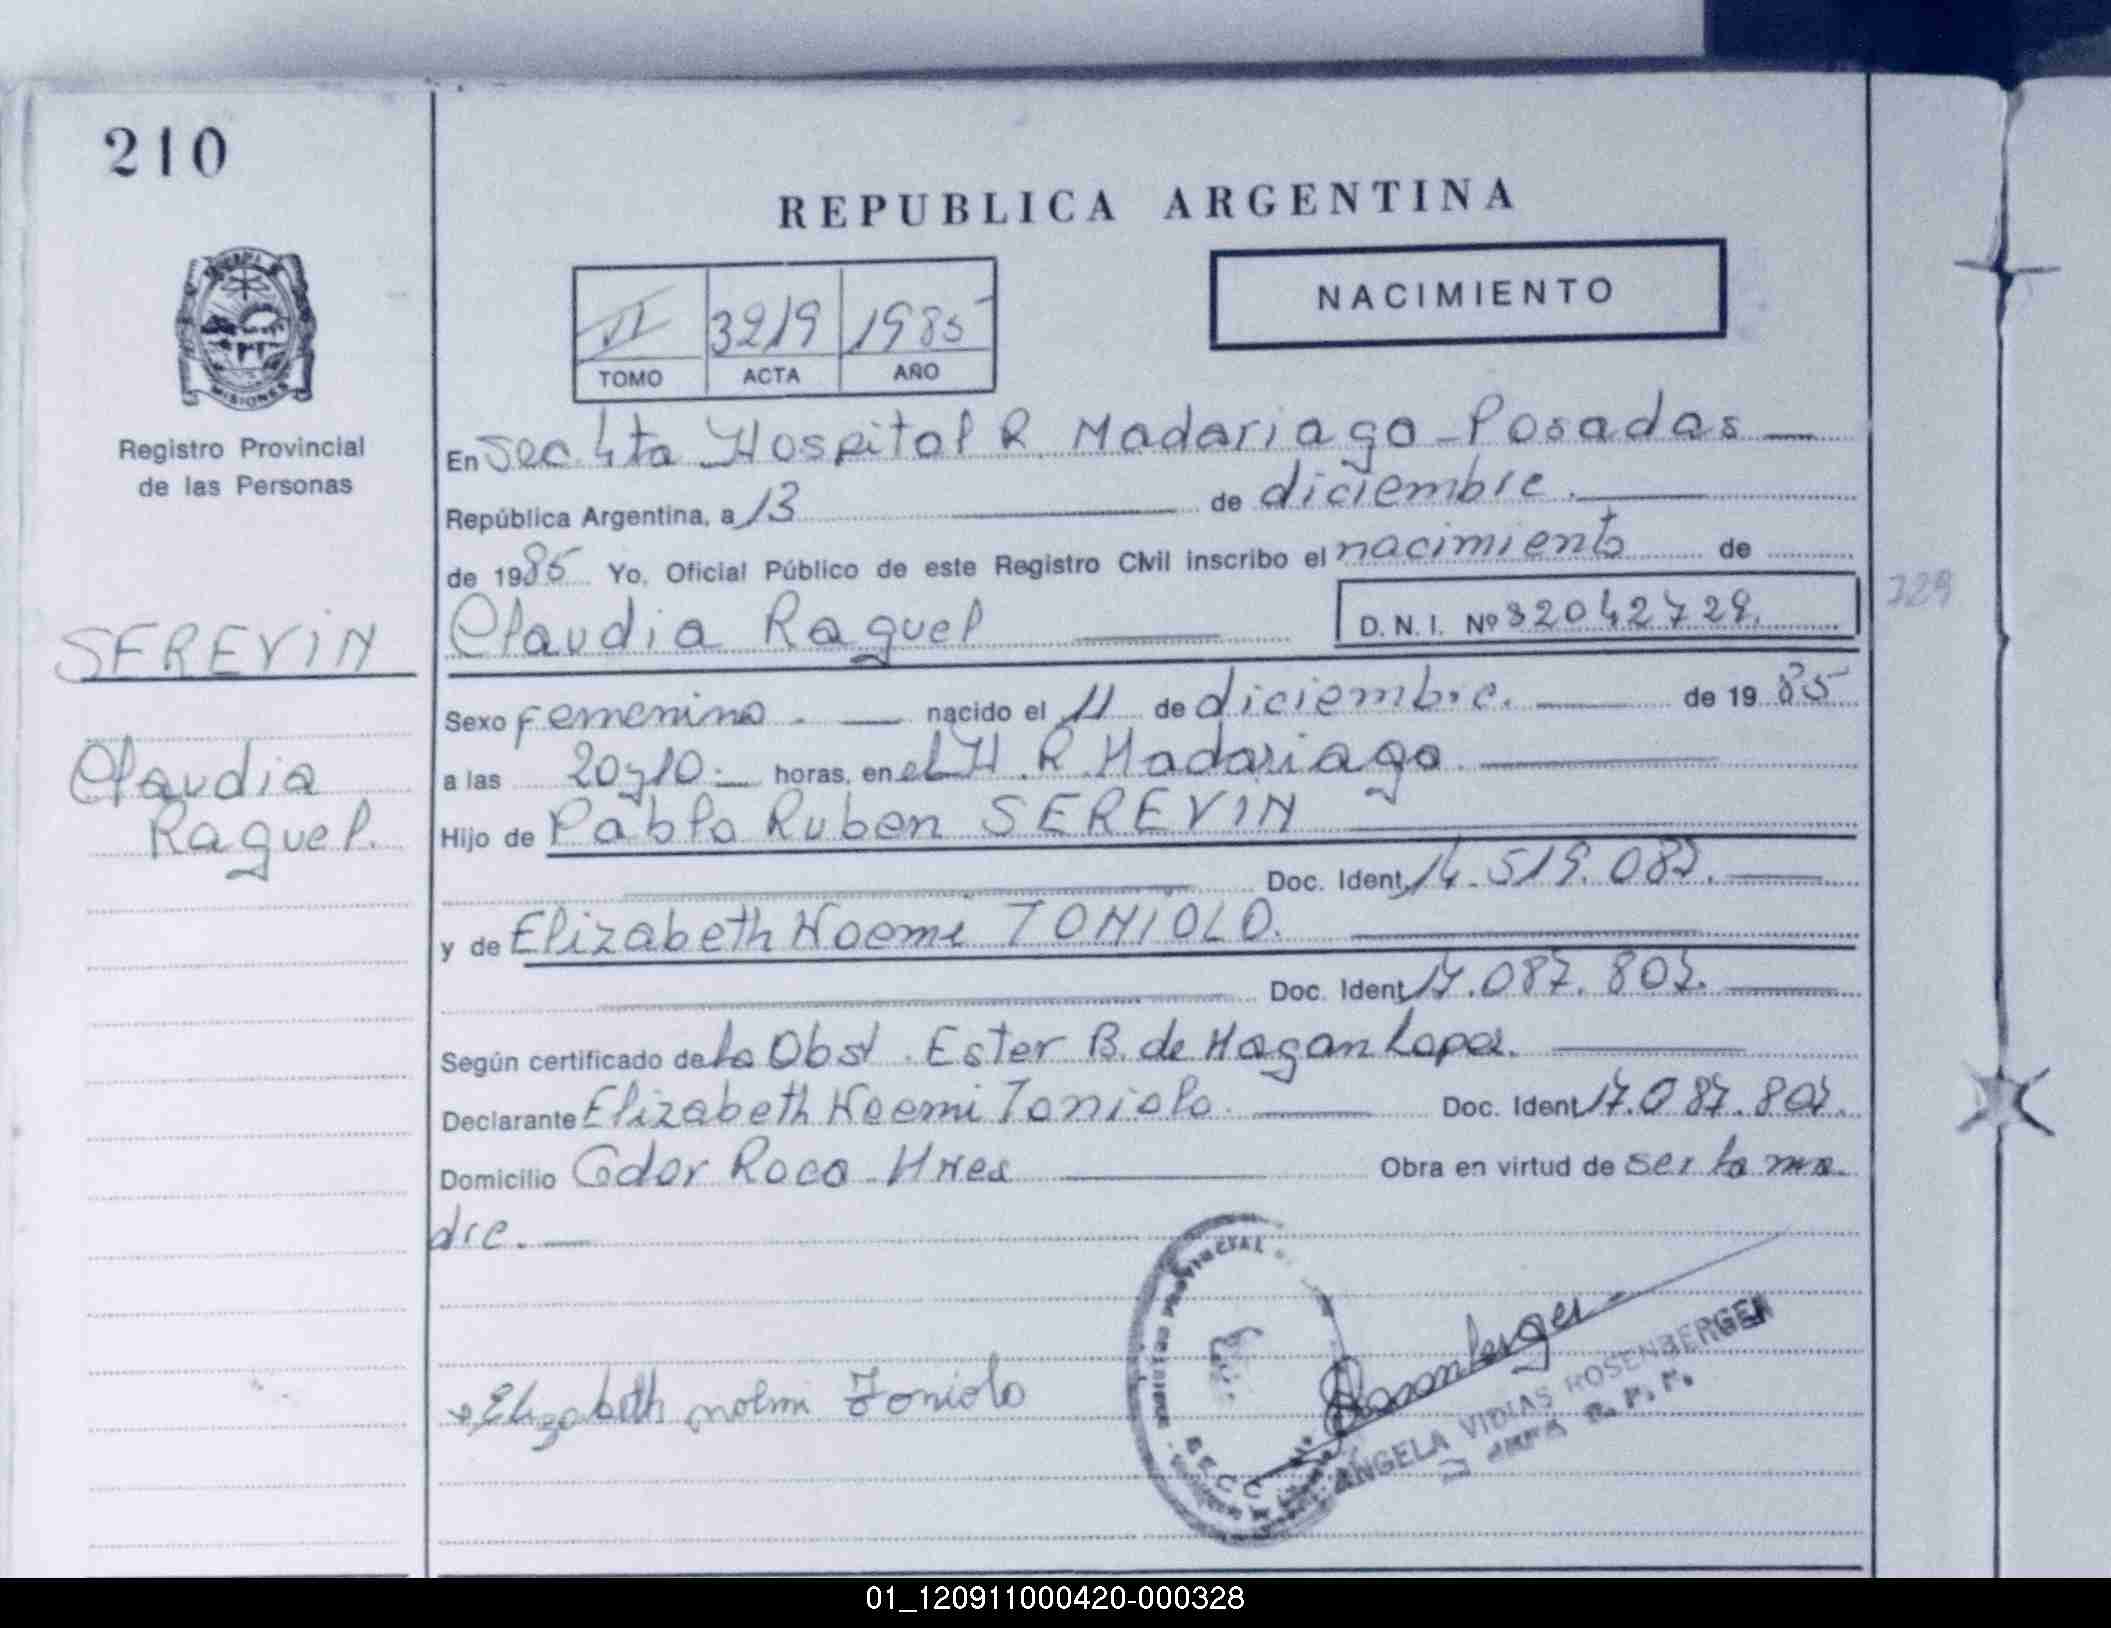 210
REPUBLICA ARGENTINA
NACIMIENTO
VI 3219 1985
TOMO ACTA AÑO
MISIONES
Registro Provincial
de las Personas
En Sec 4ta Hospital R. Madariaga - Posadas
República Argentina, a 13 de diciembre.
de 1985 Yo, Oficial Público de este Registro Civil inscribo el nacimiento de
SEREVIN
Claudia Raquel
D.N.I. Nº 32042729.
729
Claudia
Raquel.
Sexo femenino. nacido el 11 de diciembre. de 1985
a las 20y10. horas, en el H. R. Madariaga.
Hijo de Pablo Ruben SEREVIN
Doc. Ident 14.519.087.
y de Elizabeth Noemi TONIOLO.
Doc. Ident 17.087.807.
Según certificado de la Obst. Ester B. de
Declarante Elizabeth Noemi Toniolo. Doc. Ident 17.087.807.
Domicilio Cdor Roca - Mnes Obra en virtud de ser la ma
dre.
PROVINCIAL
Elizabeth noemi Toniolo
Rosenberger
ANGELA VIDLAS ROSENBERGER
R. P. P.
01_120911000420-000328